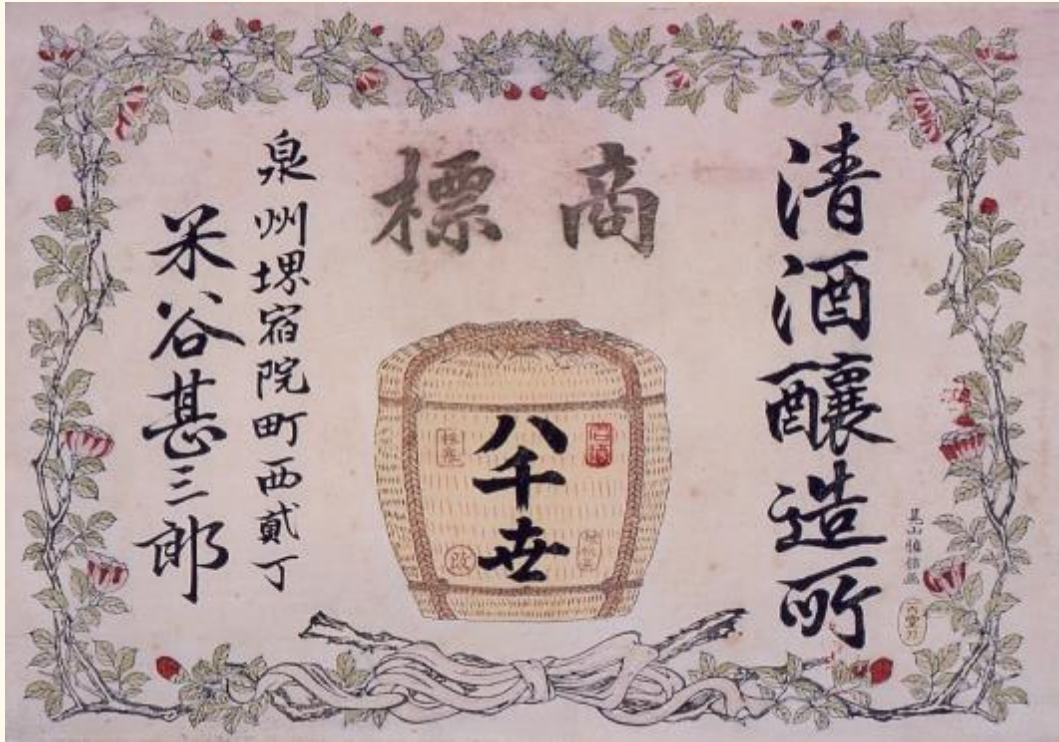 清酒醸造所
商標
八千世
改
泉州堺宿院町西貳丁
米谷甚三郎